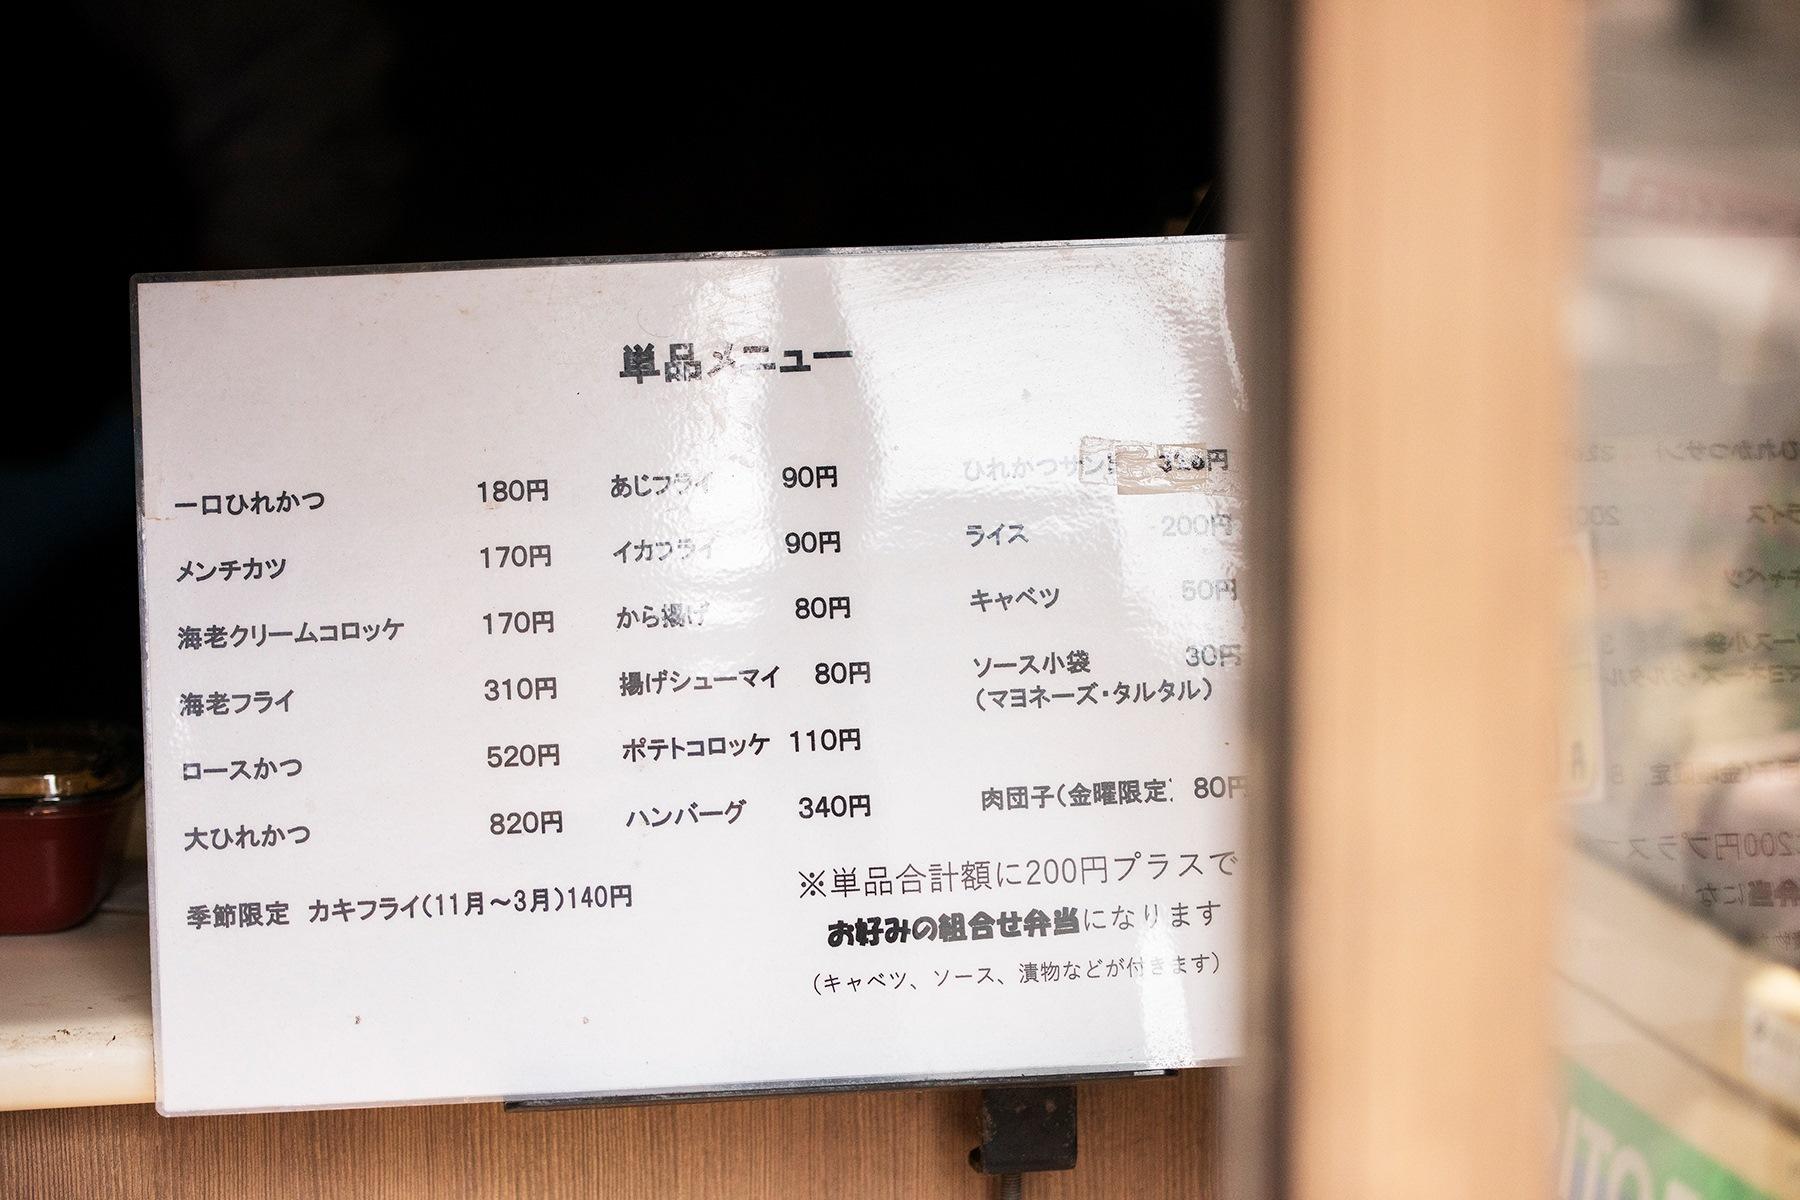 単品メニュー
一口ひれかつ 180円
メンチカツ 170円
海老クリームコロッケ 170円
海老フライ 310円
ロースかつ 520円
大ひれかつ 820円
季節限定 カキフライ(11月～3月)140円
あじフライ 90円
イカフライ 90円
から揚げ 80円
揚げシューマイ 80円
ポテトコロッケ 110円
ハンバーグ 340円
ひれかつサンド
ライス 200円
キャベツ 50円
ソース小袋 30円
(マヨネーズ・タルタル)
肉団子(金曜限定) 80円
※単品合計額に200円プラスで
お好みの組合せ弁当になります
(キャベツ、ソース、漬物などが付きます)